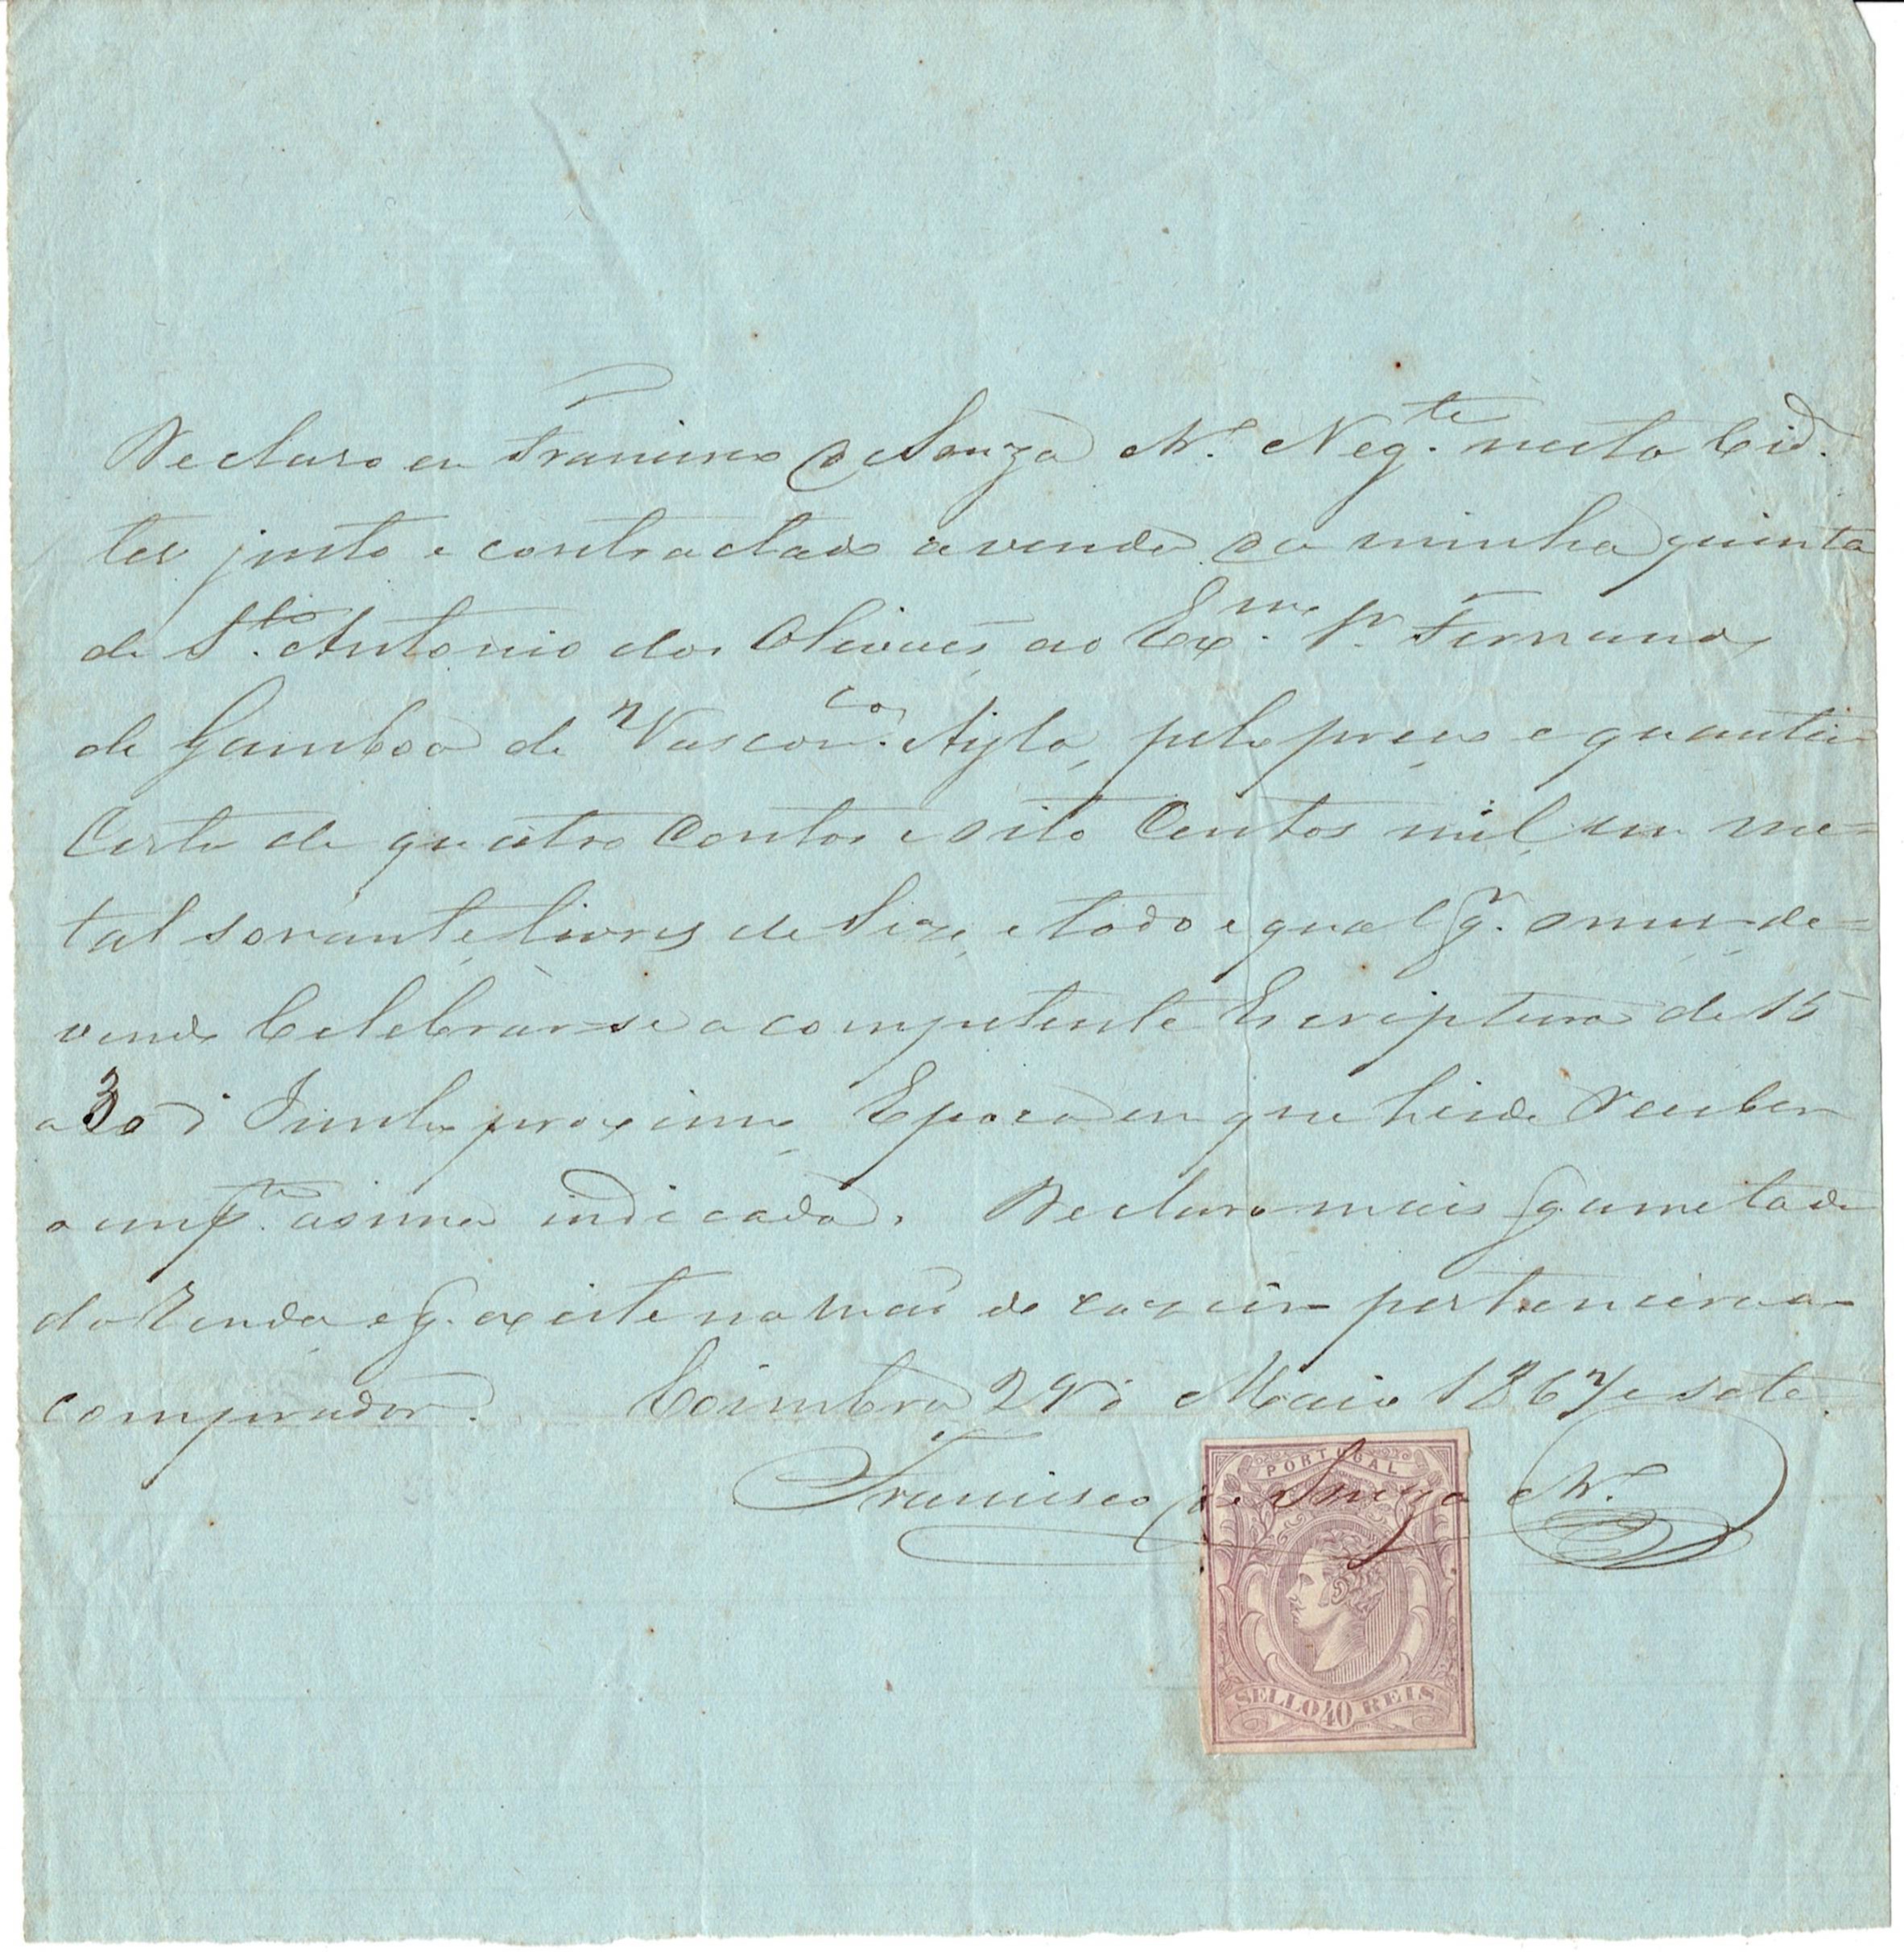 Declaro eu Francisco de Souza Nr. Neg.te nesta Cid.
ter justo e contractado a venda da minha quinta
de S.to Antonio dos Olivaes ao Ex.mo Sr. Fernando
de Gamboa de Vascon.cos Ayla, pelo preço e quantia
Certa de quatro Contos e oito Centos mil, em me=
tal sonante, livres de Siza, e todo e qualq.r onus de=
vendo Celebrar-se a competente Escriptura de 15
a 30 d' Junho proximo, Epoca em que heide Receber
a imp.te asima indicada. Declaro mais q. a metade
da Renda q. existe na mão do caseiro pertencera ao
comprador. Coimbra 29 d' Maio 1867 e sete.
Francisco de Souza Nr.
PORTUGAL
SELLO 40 REIS